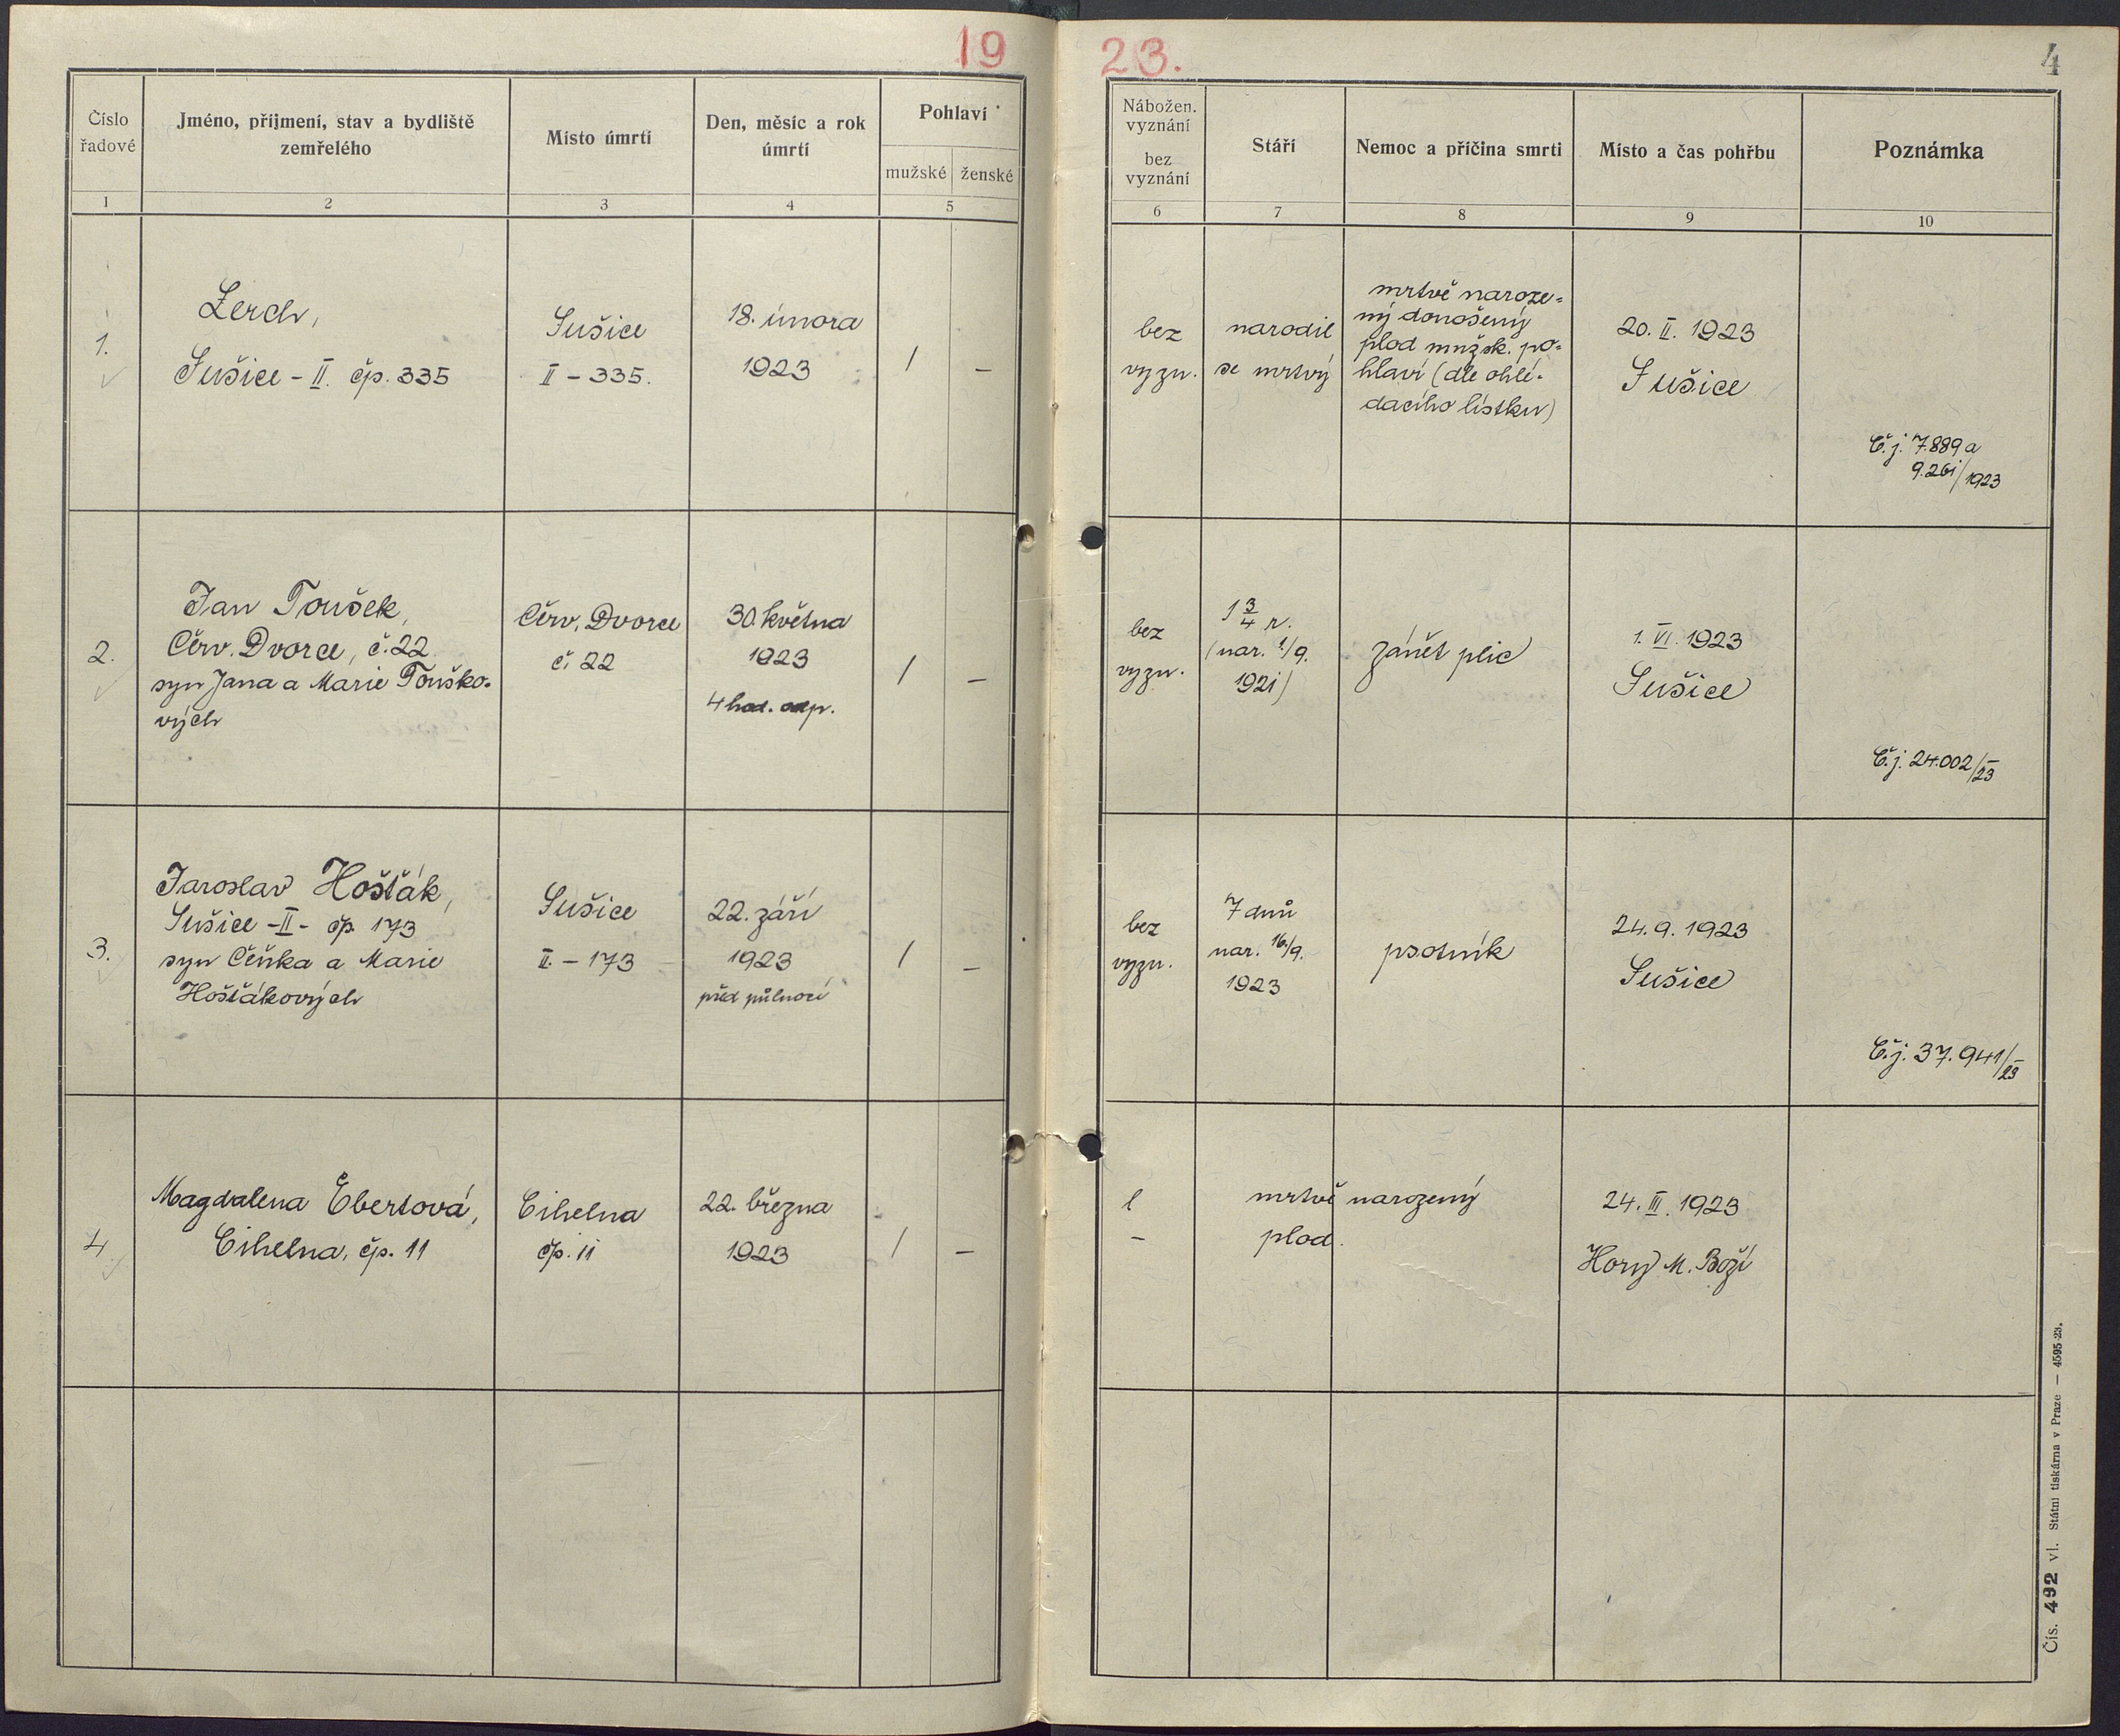 19 23. 4
Číslo řadové
Jméno, příjmení, stav a bydliště zemřelého
Místo úmrtí
Den, měsíc a rok úmrtí
Pohlaví
mužské ženské
Nábožen. vyznání
bez vyznání
Stáří
Nemoc a příčina smrti
Místo a čas pohřbu
Poznámka
1 2 3 4 5 6 7 8 9 10
1.
Lerch,
Sušice - II. čp. 335
Sušice
II - 335.
18. února
1923
/ -
bez
vyzn.
narodil
se mrtvý
mrtvě naroze=
ný donošený
plod mužsk. po=
hlaví (dle ohlé-
dacího lístku)
20. II. 1923
Sušice
Č.j. 7.889 a
9.261/1923
2.
Jan Toušek,
Červ. Dvorce, č. 22
syn Jana a Marie Touško-
vých
Červ. Dvorce
č. 22
30. května
1923
4 hod. odp.
/ -
bez
vyzn.
1 3/4 r.
(nar. 1/9.
1921)
zánět plic
1. VI. 1923
Sušice
Č.j. 24.002/23
3.
Jaroslav Hošťák,
Sušice - II - čp. 173
syn Čeňka a Marie
Hošťákových
Sušice
II. - 173
22. září
1923
před půlnocí
/ -
bez
vyzn.
7 dnů
nar. 16./9.
1923
psotník
24. 9. 1923
Sušice
Č.j. 37.941/23
4.
Magdalena Ebertová,
Cihelna, čp. 11
Cihelna
čp. 11
22. března
1923
/ -
-
mrtvě narozený
plod.
24. III. 1923
Hory M. Boží
Čís. 492 vl. Státní tiskárna v Praze — 4595-23.